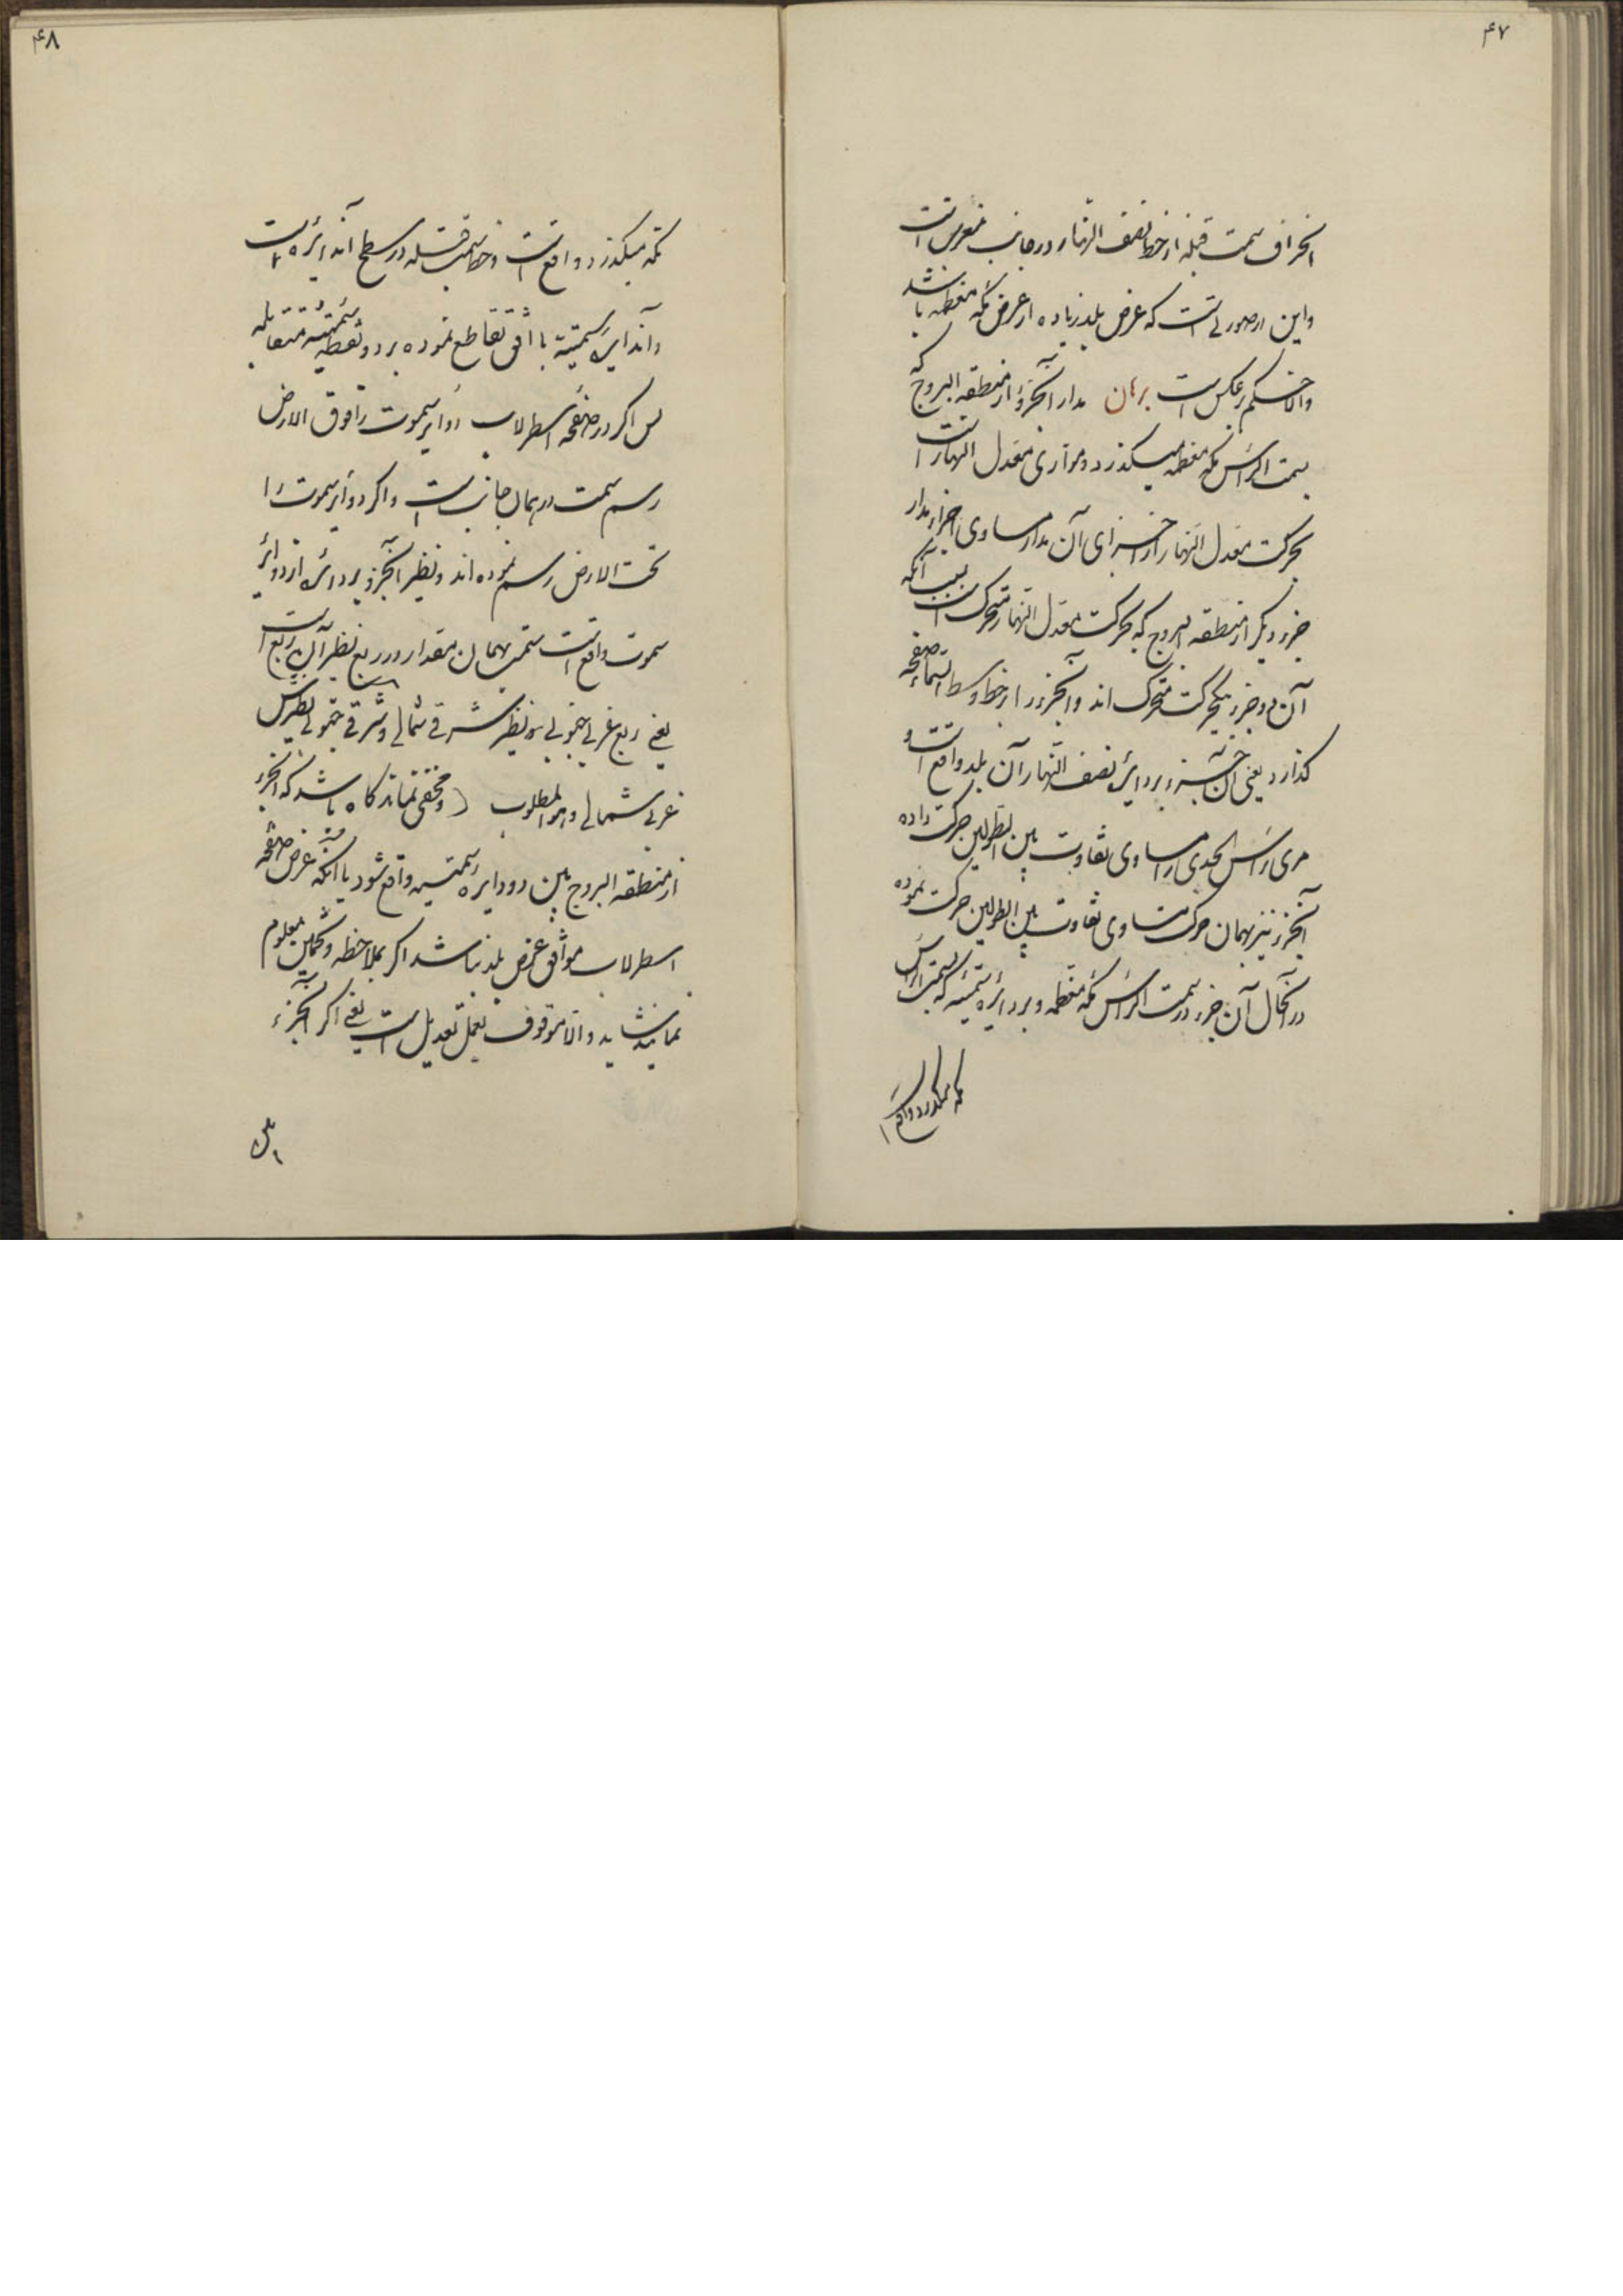 ۴۷
انحراف سمت قبله از خط نصف النهار در جانب مغرب است
واین در صورتی است که عرض بلد زیاده از عرض مکه معظمه باشد
والا حکم برعکس است برهان مدار آنجزو از منطقه البروج که
بسمت الراس مکه معظمه میکذرد و موازی معدل النهار است
بحرکت معدل النهار از اجزای آن مدار مساوی اجزاء مدار
جزو دیگر از منطقه البروج که بحرکت معدل النهار متحرک است بسبب آنکه
آن دو جزو بیکحرکت متحرک اند و آنجزو را از خط وسط السماء صفحه
کذارد یعنی آن جزو بر دایره نصف النهار آن بلد واقع است و
مری راس الجدی را مساوی تفاوت بین الطولین حرکت داده
آنجزو نیز بهمان حرکت مساوی تفاوت بین الطولین حرکت نموده
در آنحال آن جزو در سمت الراس مکه معظمه و بر دایره سمتیه که بسمت الراس
مکه میکذرد واقع
۴۸
مکه میکذرد واقع است و خط سمت قبله در سطح آندایره است
و آندایره سمتیه با افق تقاطع نموده بر دو نقطه سمتیه متقابله
پس اکر در صفحه اسطرلاب دوایر سموت را فوق الارض
رسم سمت در همان جانب است و اکر دوایر سموت را
تحت الارض رسم نموده اند و نظیر آنجزو بر دایره از دوایر
سموت واقع است سمت بهمان مقدار در ربع نظیر آن ربع است
یعنی ربع غربی جنوبی نظیرش شرقی شمالی و شرقی جنوبی نظیرش
غربی شمالی و هو المطلوب و مخفی نماند کاه باشد که آنجزو
از منطقه البروج بین دو دایره سمتیه واقع شود یا آنکه عرض صفحه
اسطرلاب موافق عرض بلد نباشد اکر بملاحظه و تخمین معلوم
نمایند شاید والا موقوف بعمل تعدیل است یعنی اکر آنجزء